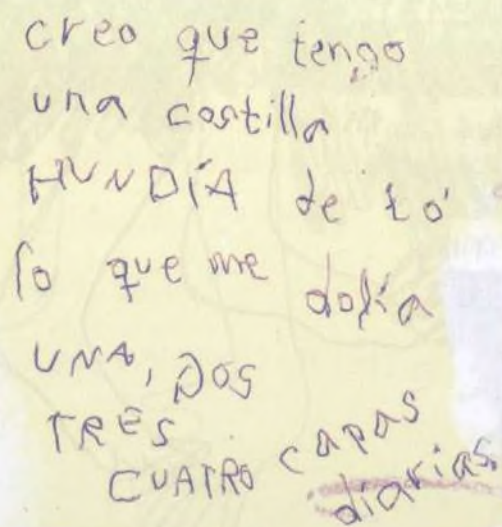 creo que tengo
una costilla
HUNDÍA de tó
lo que me dolía
UNA, DOS
TRES
CUATRO capas
diarias.